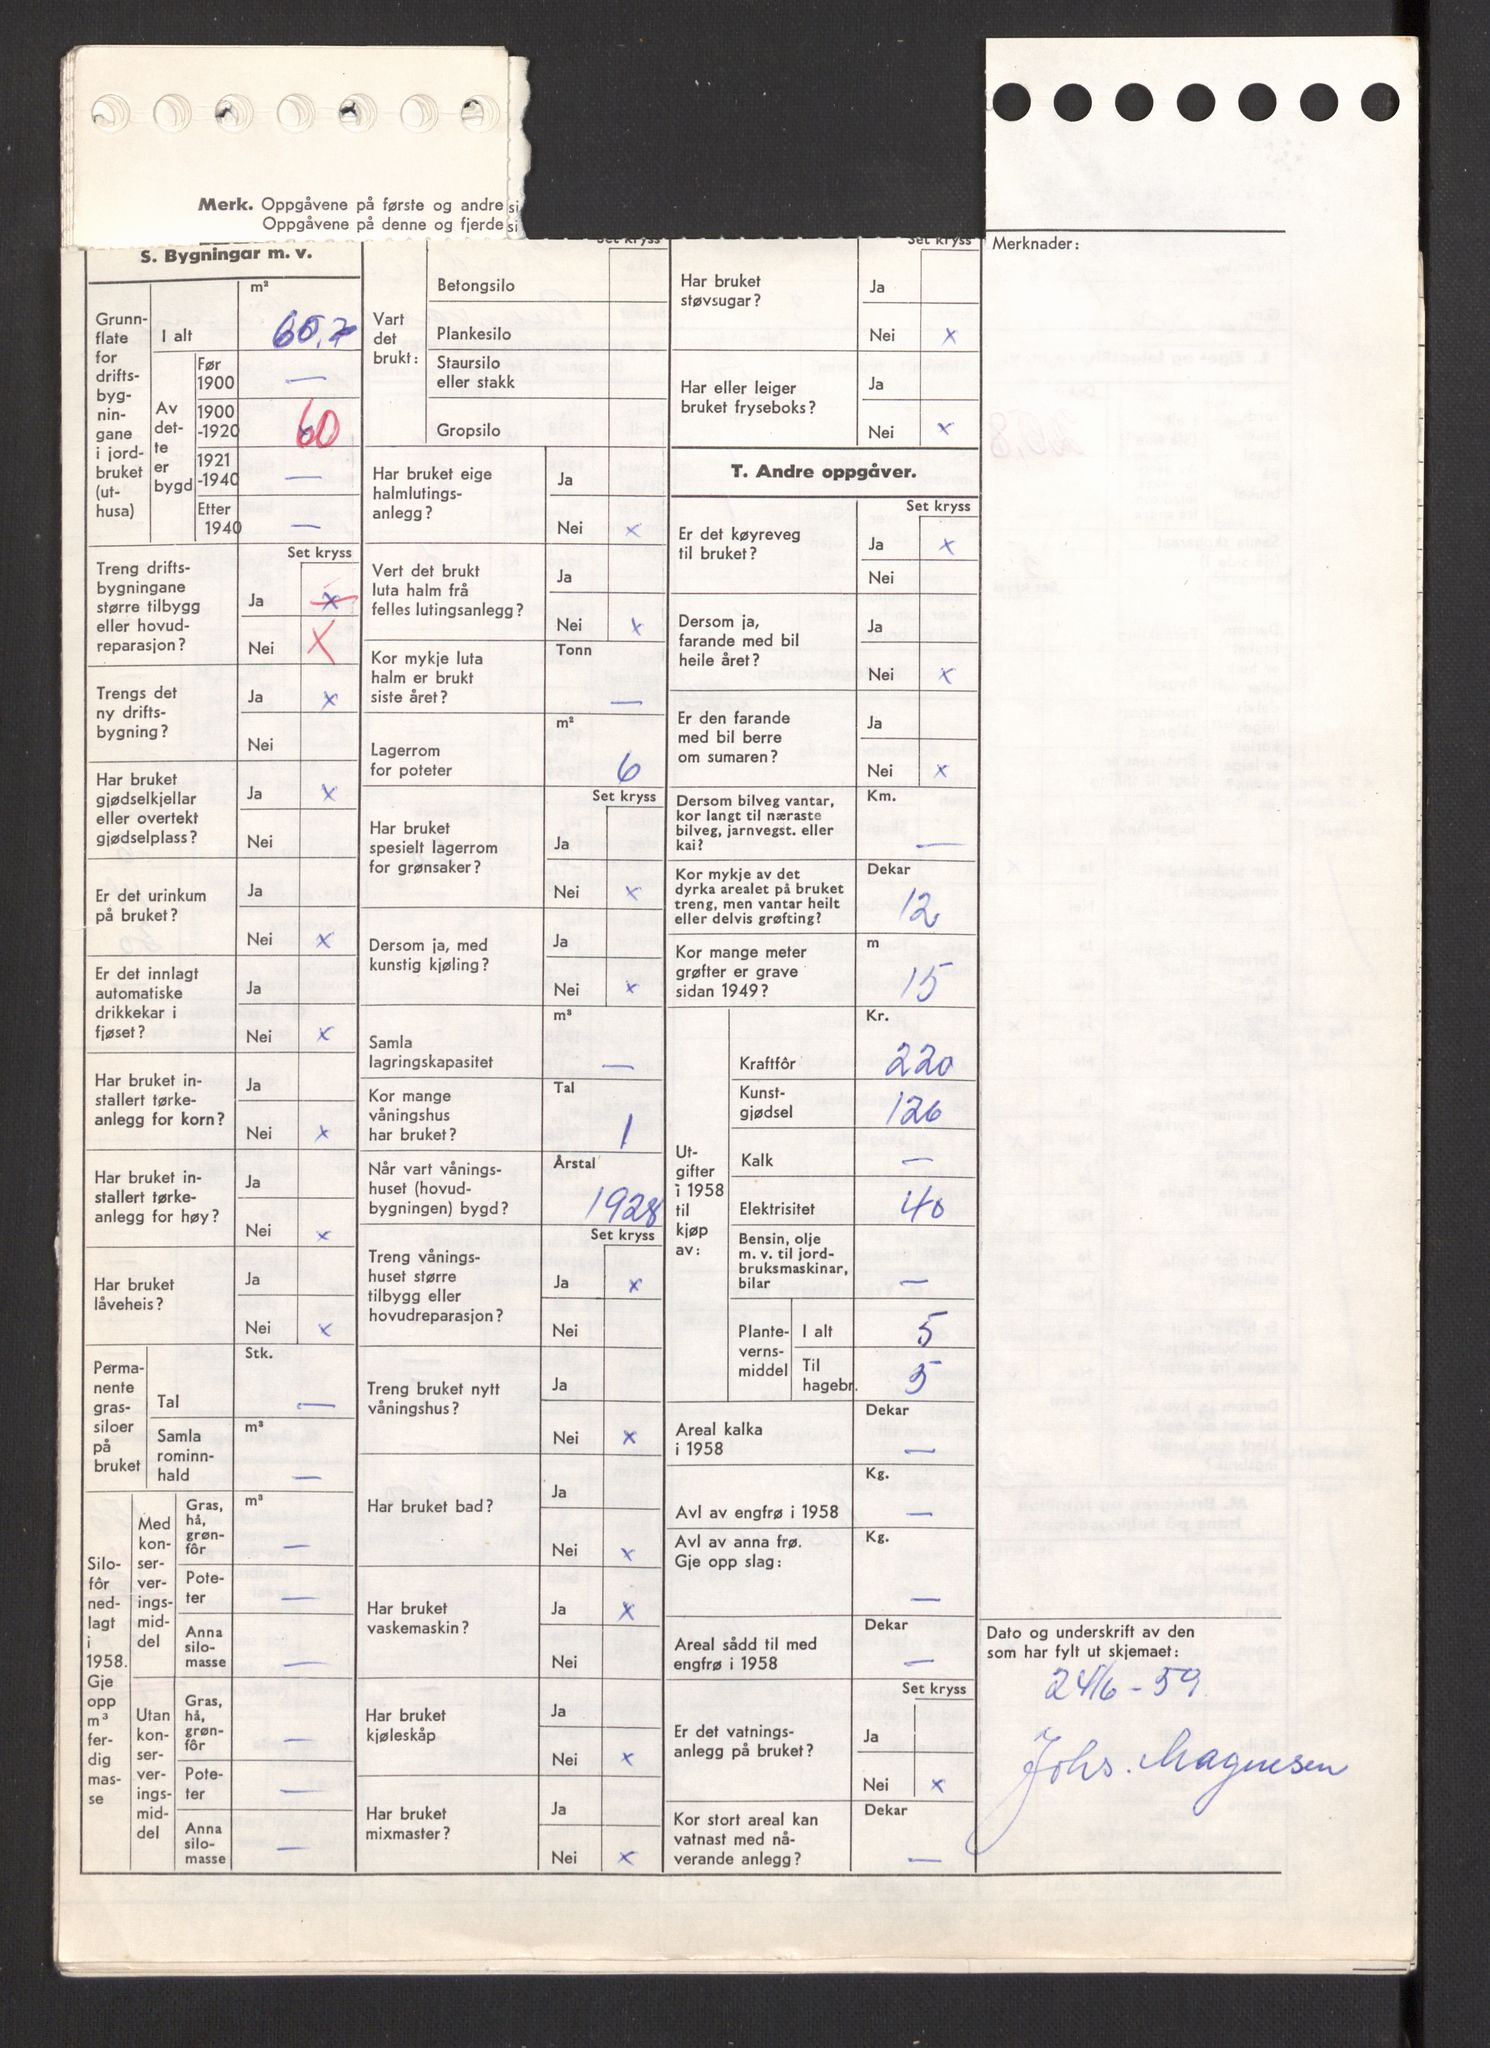 Merk. Oppgåvene på første og andre si
Oppgåvene på denne og fjerde si
S. Bygningar m. v.
Grunn-
flate
for
drifts-
byg-
nin-
gane
i jord-
bruket
(ut-
husa)
m²
I alt
Av
det-
te
er
bygd
Før
1900 —
1900
-1920 60
1921
-1940 —
Etter
1940 —
Set kryss
Treng drifts-
bygningane
større tilbygg
eller hovud-
reparasjon?
Ja x
Nei X
Trengs det
ny drifts-
bygning?
Ja x
Nei
Har bruket
gjødselkjellar
eller overtekt
gjødselplass?
Ja x
Nei
Er det urinkum
på bruket?
Ja
Nei x
Er det innlagt
automatiske
drikkekar i
fjøset?
Ja
Nei x
Har bruket in-
stallert tørke-
anlegg for korn?
Ja
Nei x
Har bruket in-
stallert tørke-
anlegg for høy?
Ja
Nei x
Har bruket
låveheis?
Ja
Nei x
Perma-
nente
gras-
siloer
på
bruket
Stk.
Tal —
Samla
rominn-
hald
m³
—
Silo-
fôr
ned-
lagt
i
1958.
Gje
opp
m³
fer-
dig
mas-
se
Med
kon-
ser-
ver-
ings-
mid-
del
m³
Gras,
hå,
grøn-
fôr —
Pote-
ter —
Anna
silo-
masse —
Utan
kon-
ser-
ver-
ings-
mid-
del
Gras,
hå,
grøn-
fôr —
Pote-
ter —
Anna
silo-
masse —
Set kryss
Vart
det
brukt:
Betongsilo
Plankesilo
Staursilo
eller stakk
Gropsilo
Har bruket eige
halmlutings-
anlegg?
Ja
Nei x
Vert det brukt
luta halm frå
felles lutingsanlegg?
Ja
Nei x
Kor mykje luta
halm er brukt
siste året?
Tonn
—
Lagerrom
for poteter
m²
6
Set kryss
Har bruket
spesielt lagerrom
for grønsaker?
Ja
Nei x
Dersom ja, med
kunstig kjøling?
Ja
Nei x
Samla
lagringskapasitet
m³
—
Kor mange
våningshus
har bruket?
Tal
1
Når vart vånings-
huset (hovud-
bygningen) bygd?
Årstal
1928
Set kryss
Treng vånings-
huset større
tilbygg eller
hovudreparasjon?
Ja x
Nei
Treng bruket nytt
våningshus?
Ja
Nei x
Har bruket bad?
Ja
Nei x
Har bruket
vaskemaskin?
Ja x
Nei
Har bruket
kjøleskåp
Ja
Nei x
Har bruket
mixmaster?
Ja
Nei x
Set kryss
Har bruket
støvsugar?
Ja
Nei x
Har eller leiger
bruket fryseboks?
Ja
Nei x
T. Andre oppgåver.
Set kryss
Er det køyreveg
til bruket?
Ja x
Nei
Dersom ja,
farande med bil
heile året?
Ja
Nei x
Er den farande
med bil berre
om sumaren?
Ja
Nei x
Dersom bilveg vantar,
kor langt til næraste
bilveg, jarnvegst. eller
kai?
Km.
—
Kor mykje av det
dyrka arealet på bruket
treng, men vantar heilt
eller delvis grøfting?
Dekar
12
Kor mange meter
grøfter er grave
sidan 1949?
m
15
Ut-
gifter
i 1958
til
kjøp
av:
Kr.
Kraftfôr 220
Kunst-
gjødsel 126
Kalk —
Elektrisitet 40
Bensin, olje
m. v. til jord-
bruksmaskinar,
bilar —
Plante-
verns-
middel
I alt 5
Til
hagebr. 5
Areal kalka
i 1958
Dekar
—
Avl av engfrø i 1958
Kg.
—
Avl av anna frø.
Gje opp slag:
Kg.
—
Areal sådd til med
engfrø i 1958
Dekar
—
Set kryss
Er det vatnings-
anlegg på bruket?
Ja
Nei x
Kor stort areal kan
vatnast med nå-
verande anlegg?
Dekar
—
Merknader:
Dato og underskrift av den
som har fylt ut skjemaet:
24/6 - 59.
Johs. Magnesen